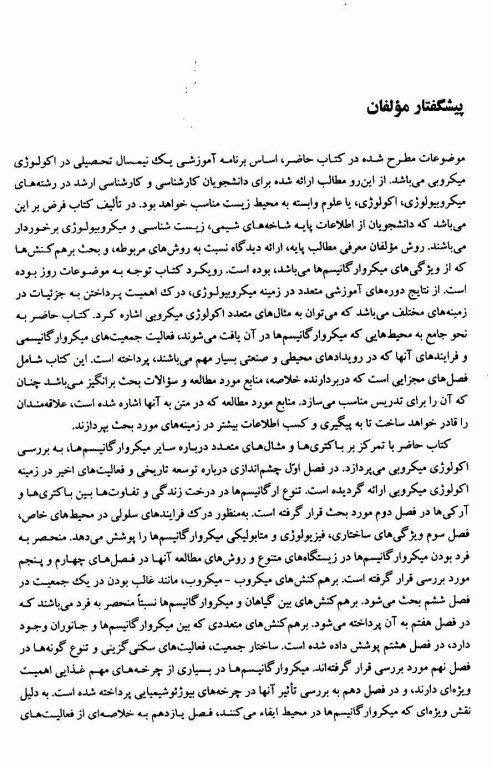 پیشگفتار مؤلفان
موضوعات مطرح شده در کتاب حاضر، اساس برنامه آموزشی یک نیمسال تحصیلی در اکولوژی
میکروبی می‌باشد. از این‌رو مطالب ارائه شده برای دانشجویان کارشناسی و کارشناسی ارشد در رشته‌های
میکروبیولوژی، اکولوژی، یا علوم وابسته به محیط زیست مناسب خواهد بود. در تألیف کتاب فرض بر این
می‌باشد که دانشجویان از اطلاعات پایه شاخه‌های شیمی، زیست شناسی و میکروبیولوژی برخوردار
می‌باشند. روش مؤلفان معرفی مطالب پایه، ارائه دیدگاه نسبت به روش‌های مربوطه، و بحث برهم‌کنش‌ها
که از ویژگی‌های میکروارگانیسم‌ها می‌باشد، بوده است. رویکرد کتاب توجه به موضوعات روز بوده
است. از نتایج دوره‌های آموزشی متعدد در زمینه میکروبیولوژی، درک اهمیت پرداختن به جزئیات در
زمینه‌های مختلف می‌باشد که می‌توان به مثال‌های متعدد اکولوژی میکروبی اشاره کرد. کتاب حاضر به
نحو جامع به محیط‌هایی که میکروارگانیسم‌ها در آن یافت می‌شوند، فعالیت جمعیت‌های میکروارگانیسمی
و فرایندهای آنها که در رویدادهای محیطی و صنعتی بسیار مهم می‌باشند، پرداخته است. این کتاب شامل
فصل‌های مجزایی است که دربردارنده خلاصه، منابع مورد مطالعه و سؤالات بحث برانگیز می‌باشد چنان
که آن را برای تدریس مناسب می‌سازد. منابع مورد مطالعه که در متن به آنها اشاره شده است، علاقه‌مندان
را قادر خواهد ساخت تا به پیگیری و کسب اطلاعات بیشتر در زمینه‌های مورد بحث بپردازند.
کتاب حاضر با تمرکز بر باکتری‌ها و مثال‌های متعدد درباره سایر میکروارگانیسم‌ها، به بررسی
اکولوژی میکروبی می‌پردازد. در فصل اوّل چشم‌اندازی درباره توسعه تاریخی و فعالیت‌های اخیر در زمینه
اکولوژی میکروبی ارائه گردیده است. تنوع ارگانیسم‌ها در درخت زندگی و تفاوت‌ها بین باکتری‌ها و
آرکی‌ها در فصل دوم مورد بحث قرار گرفته است. به‌منظور درک فرایندهای سلولی در محیط‌های خاص،
فصل سوم ویژگی‌های ساختاری، فیزیولوژی و متابولیکی میکروارگانیسم‌ها را پوشش می‌دهد. منحصر به
فرد بودن میکروارگانیسم‌ها در زیستگاه‌های متنوع و روش‌های مطالعه آنها در فصل‌های چهارم و پنجم
مورد بررسی قرار گرفته است. برهم‌کنش‌های میکروب - میکروب، مانند غالب بودن در یک جمعیت در
فصل ششم بحث می‌شود. برهم‌کنش‌های بین گیاهان و میکروارگانیسم‌ها نسبتاً منحصر به فرد می‌باشند که
در فصل هفتم به آن پرداخته می‌شود. برهم‌کنش‌های متعددی که بین میکروارگانیسم‌ها و جانوران وجود
دارد، در فصل هشتم پوشش داده شده است. ساختار جمعیت، فعالیت‌های سکنی‌گزینی و تنوع گونه‌ها در
فصل نهم مورد بررسی قرار گرفته‌اند. میکروارگانیسم‌ها در بسیاری از چرخه‌های مهم غذایی اهمیت
ویژه‌ای دارند، و در فصل دهم به بررسی تأثیر آنها در چرخه‌های بیوژئوشیمیایی پرداخته شده است. به دلیل
نقش ویژه‌ای که میکروارگانیسم‌ها در محیط ایفاء می‌کنند، فصل یازدهم به خلاصه‌ای از فعالیت‌های